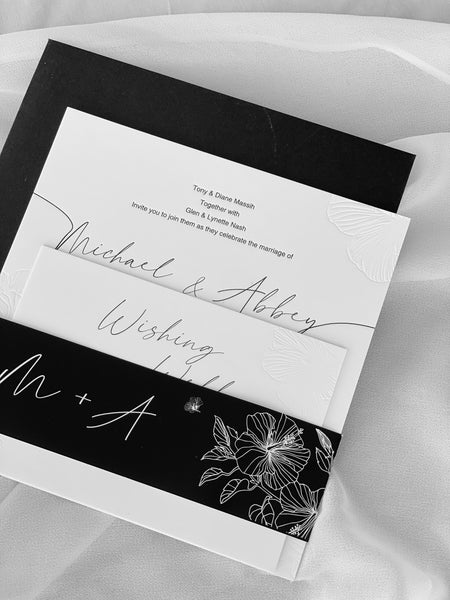 Tony & Diane Massih
Together with
Glen & Lynette Nash
Invite you to join them as they celebrate the marriage of
Michael & Abbey
Wishing
Well
M + A